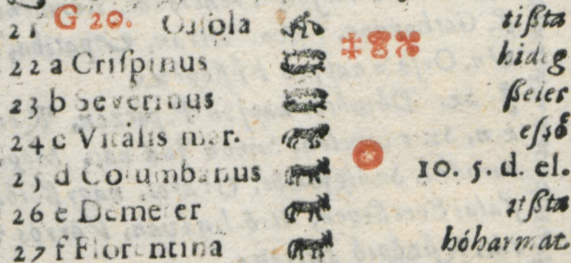 21 G 20. Orsola tißta
22 a Crispinus hideg
23 b Severinus ßeles
24 c Vitális mar. esső
25 d Columbanus 10. 5. d. el.
26 e Demeter tißta
27 f Florentina hóharmat.